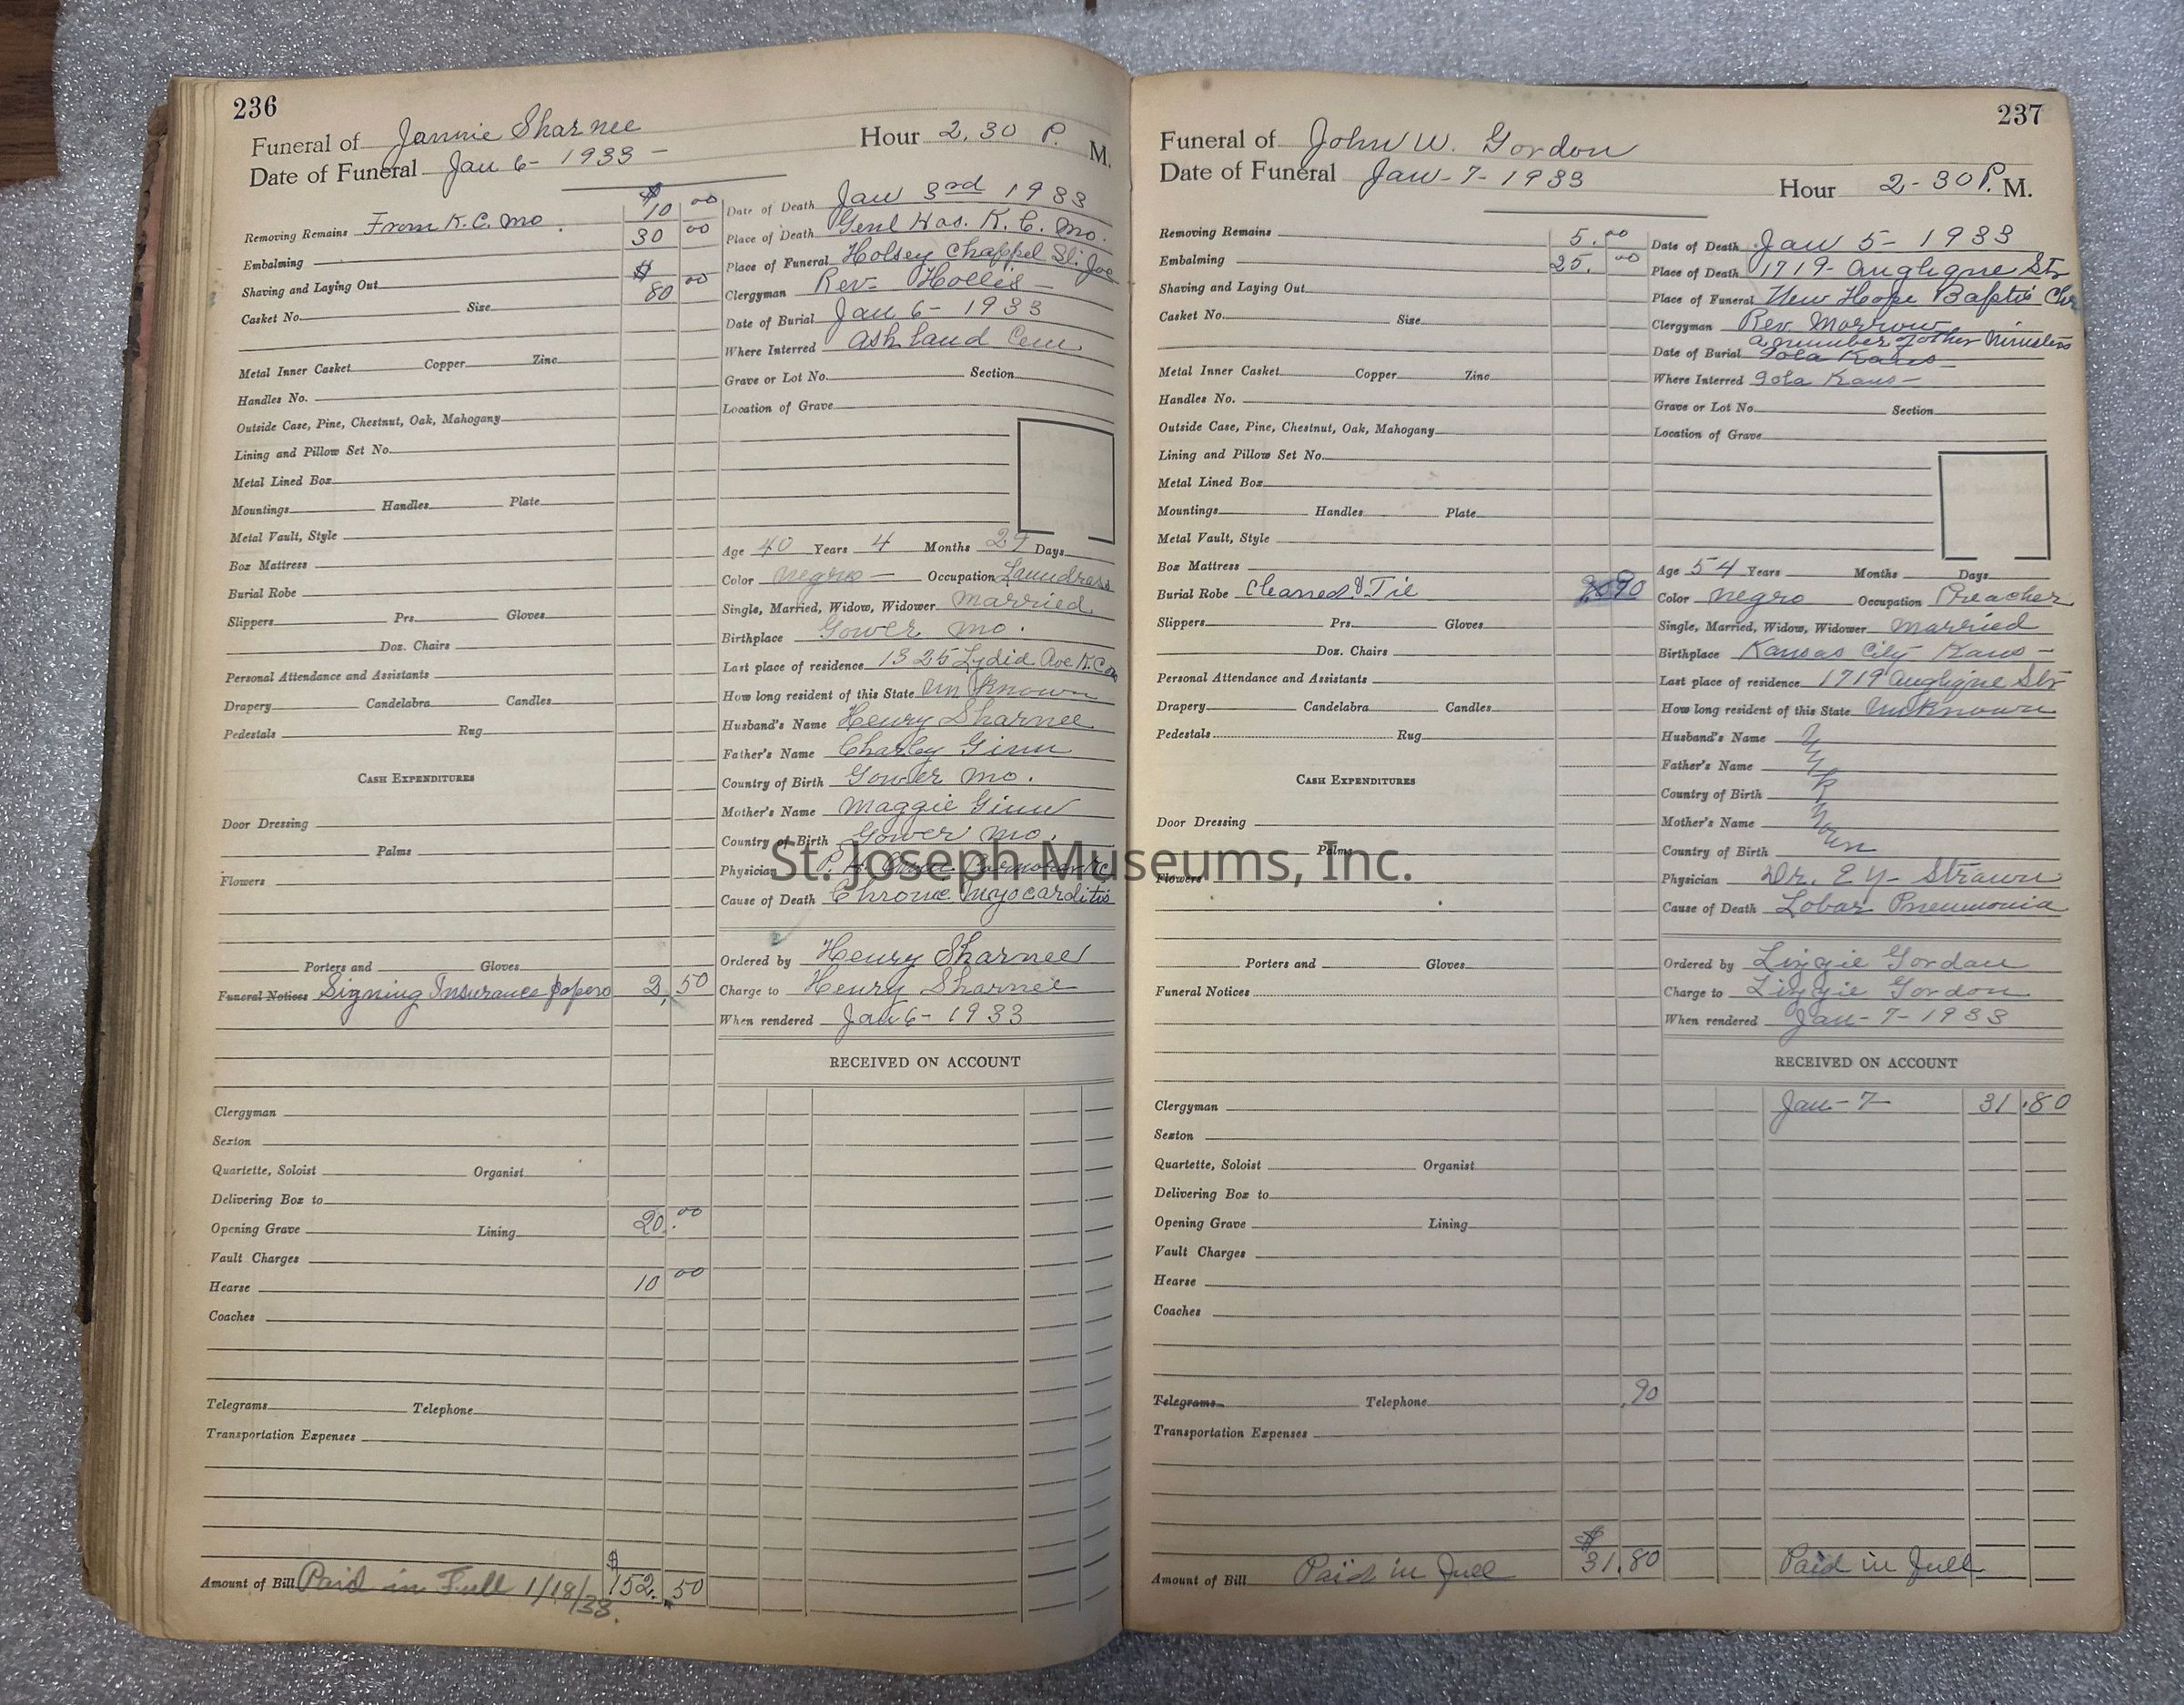 236
Funeral of Jannie Sharnee Hour 2.30 P. M.
Date of Funeral Jan 6 - 1933 -
Removing Remains From K.C. Mo. $10 00
Embalming 30 00
Shaving and Laying Out
Casket No. Size $80 00
Metal Inner Casket Copper Zinc
Handles No.
Outside Case, Pine, Chestnut, Oak, Mahogany
Lining and Pillow Set No.
Metal Lined Box
Mountings Handles Plate
Metal Vault, Style
Box Mattress
Burial Robe
Slippers Prs. Gloves
Doz. Chairs
Personal Attendance and Assistants
Drapery Candelabra Candles
Pedestals Rug
CASH EXPENDITURES
Door Dressing
Palms
Flowers
Porters and Gloves
Funeral Notices Signing Insurance papers 2,50
Clergyman
Sexton
Quartette, Soloist Organist
Delivering Box to
Opening Grave Lining 20.00
Vault Charges
Hearse 10 00
Coaches
Telegrams Telephone
Transportation Expenses
Amount of Bill Paid in Full 1/18/33. $152.50
Date of Death Jan 3rd 1933
Place of Death Genl Hos. K. C. Mo.
Place of Funeral Holsey Chappel St. Joe
Clergyman Rev- Hollis -
Date of Burial Jan 6 - 1933
Where Interred Ashland Cem
Grave or Lot No. Section
Location of Grave
Age 40 Years 4 Months 29 Days
Color Negro - Occupation Laundress
Single, Married, Widow, Widower Married
Birthplace Gower Mo.
Last place of residence 1325 Lydid Ave K.C.
How long resident of this State Unknown
Husband's Name Henry Sharnee
Father's Name Charley Ginn
Country of Birth Gower Mo.
Mother's Name Maggie Ginn
Country of Birth Gower Mo.
Physician
Cause of Death Chronic Myocarditis
Ordered by Henry Sharnee
Charge to Henry Sharnee
When rendered Jan 6 - 1933
RECEIVED ON ACCOUNT
St. Joseph Museums, Inc.
237
Funeral of John W. Gordon
Date of Funeral Jan - 7 - 1933 Hour 2-30 P. M.
Removing Remains 5.00
Embalming 25.00
Shaving and Laying Out
Casket No. Size
Metal Inner Casket Copper Zinc
Handles No.
Outside Case, Pine, Chestnut, Oak, Mahogany
Lining and Pillow Set No.
Metal Lined Box
Mountings Handles Plate
Metal Vault, Style
Box Mattress
Burial Robe Cleaned & Tie 90
Slippers Prs. Gloves
Doz. Chairs
Personal Attendance and Assistants
Drapery Candelabra Candles
Pedestals Rug
CASH EXPENDITURES
Door Dressing
Palms
Flowers
Porters and Gloves
Funeral Notices
Clergyman
Sexton
Quartette, Soloist Organist
Delivering Box to
Opening Grave Lining
Vault Charges
Hearse
Coaches
Telegrams Telephone .90
Transportation Expenses
Amount of Bill Paid in Full $31.80
Date of Death Jan 5 - 1933
Place of Death 1719 - Angligne Str
Place of Funeral New Hope Baptis Chr
Clergyman Rev. Morrow
a number of other Ministers
Date of Burial Iola Kans -
Where Interred Iola Kans -
Grave or Lot No. Section
Location of Grave
Age 54 Years Months Days
Color Negro Occupation Preacher
Single, Married, Widow, Widower Married
Birthplace Kansas City Kans -
Last place of residence 1719 Angligne Str
How long resident of this State Unknown
Husband's Name
Father's Name
Country of Birth
Mother's Name
Country of Birth
Physician Dr. E Y - Strawn
Cause of Death Lobar Pneumonia
Ordered by Lizzie Gordan
Charge to Lizzie Gordon
When rendered Jan - 7 - 1933
RECEIVED ON ACCOUNT
Jan - 7 - 31.80
Paid in Full